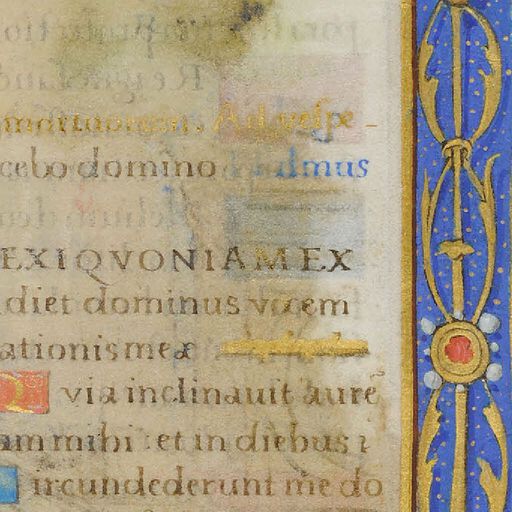 mortuorum. Ad vespe-
cebo domino psalmus
EXI QVONIAM EX
diet dominus vocem
ationis meæ
Q via inclinauit aurē
am mihi: et in diebus
ircundederunt me do